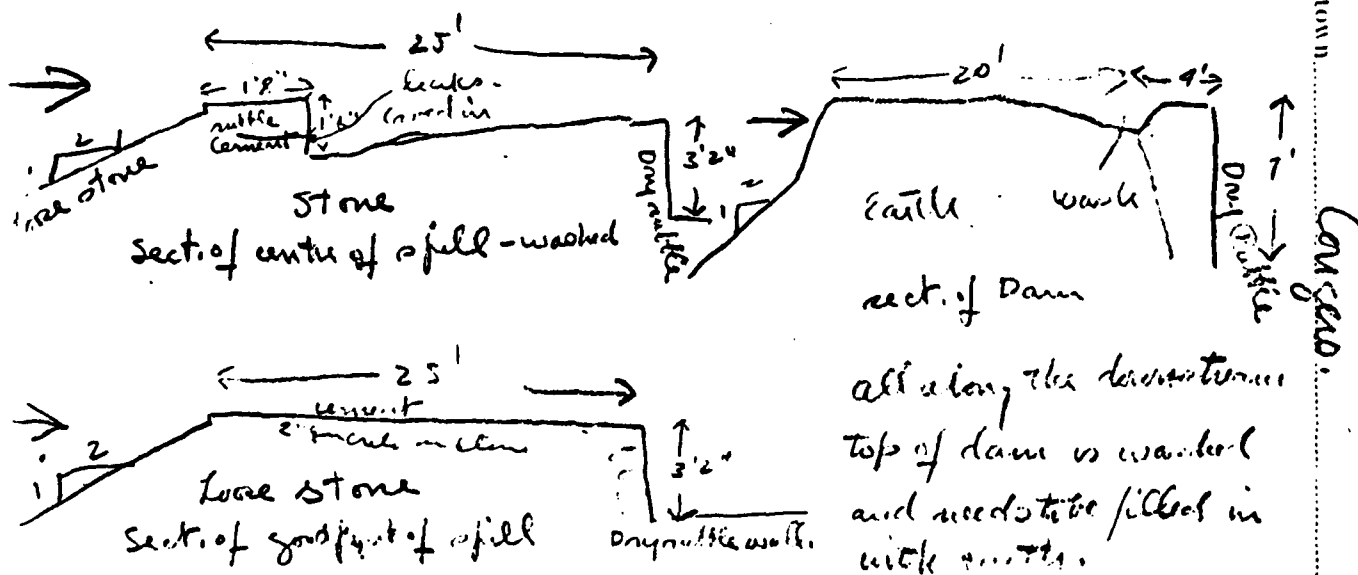 25'
1'8"
leaks.
caved in
rubble
cement
1'2"
2
1
loose stone
Stone
Sect. of centre of spill - washed
3'2"
Dry rubble
20'
4'
2
1
Earth
wash
7'
Dry Rubble
sect. of Dam
all along the downstream
top of dam is washed
and needs to be filled in
with earth.
25'
cement
2"
2
1
Loose stone
Sect. of good part of spill
3'2"
Dry rubble wall.
town